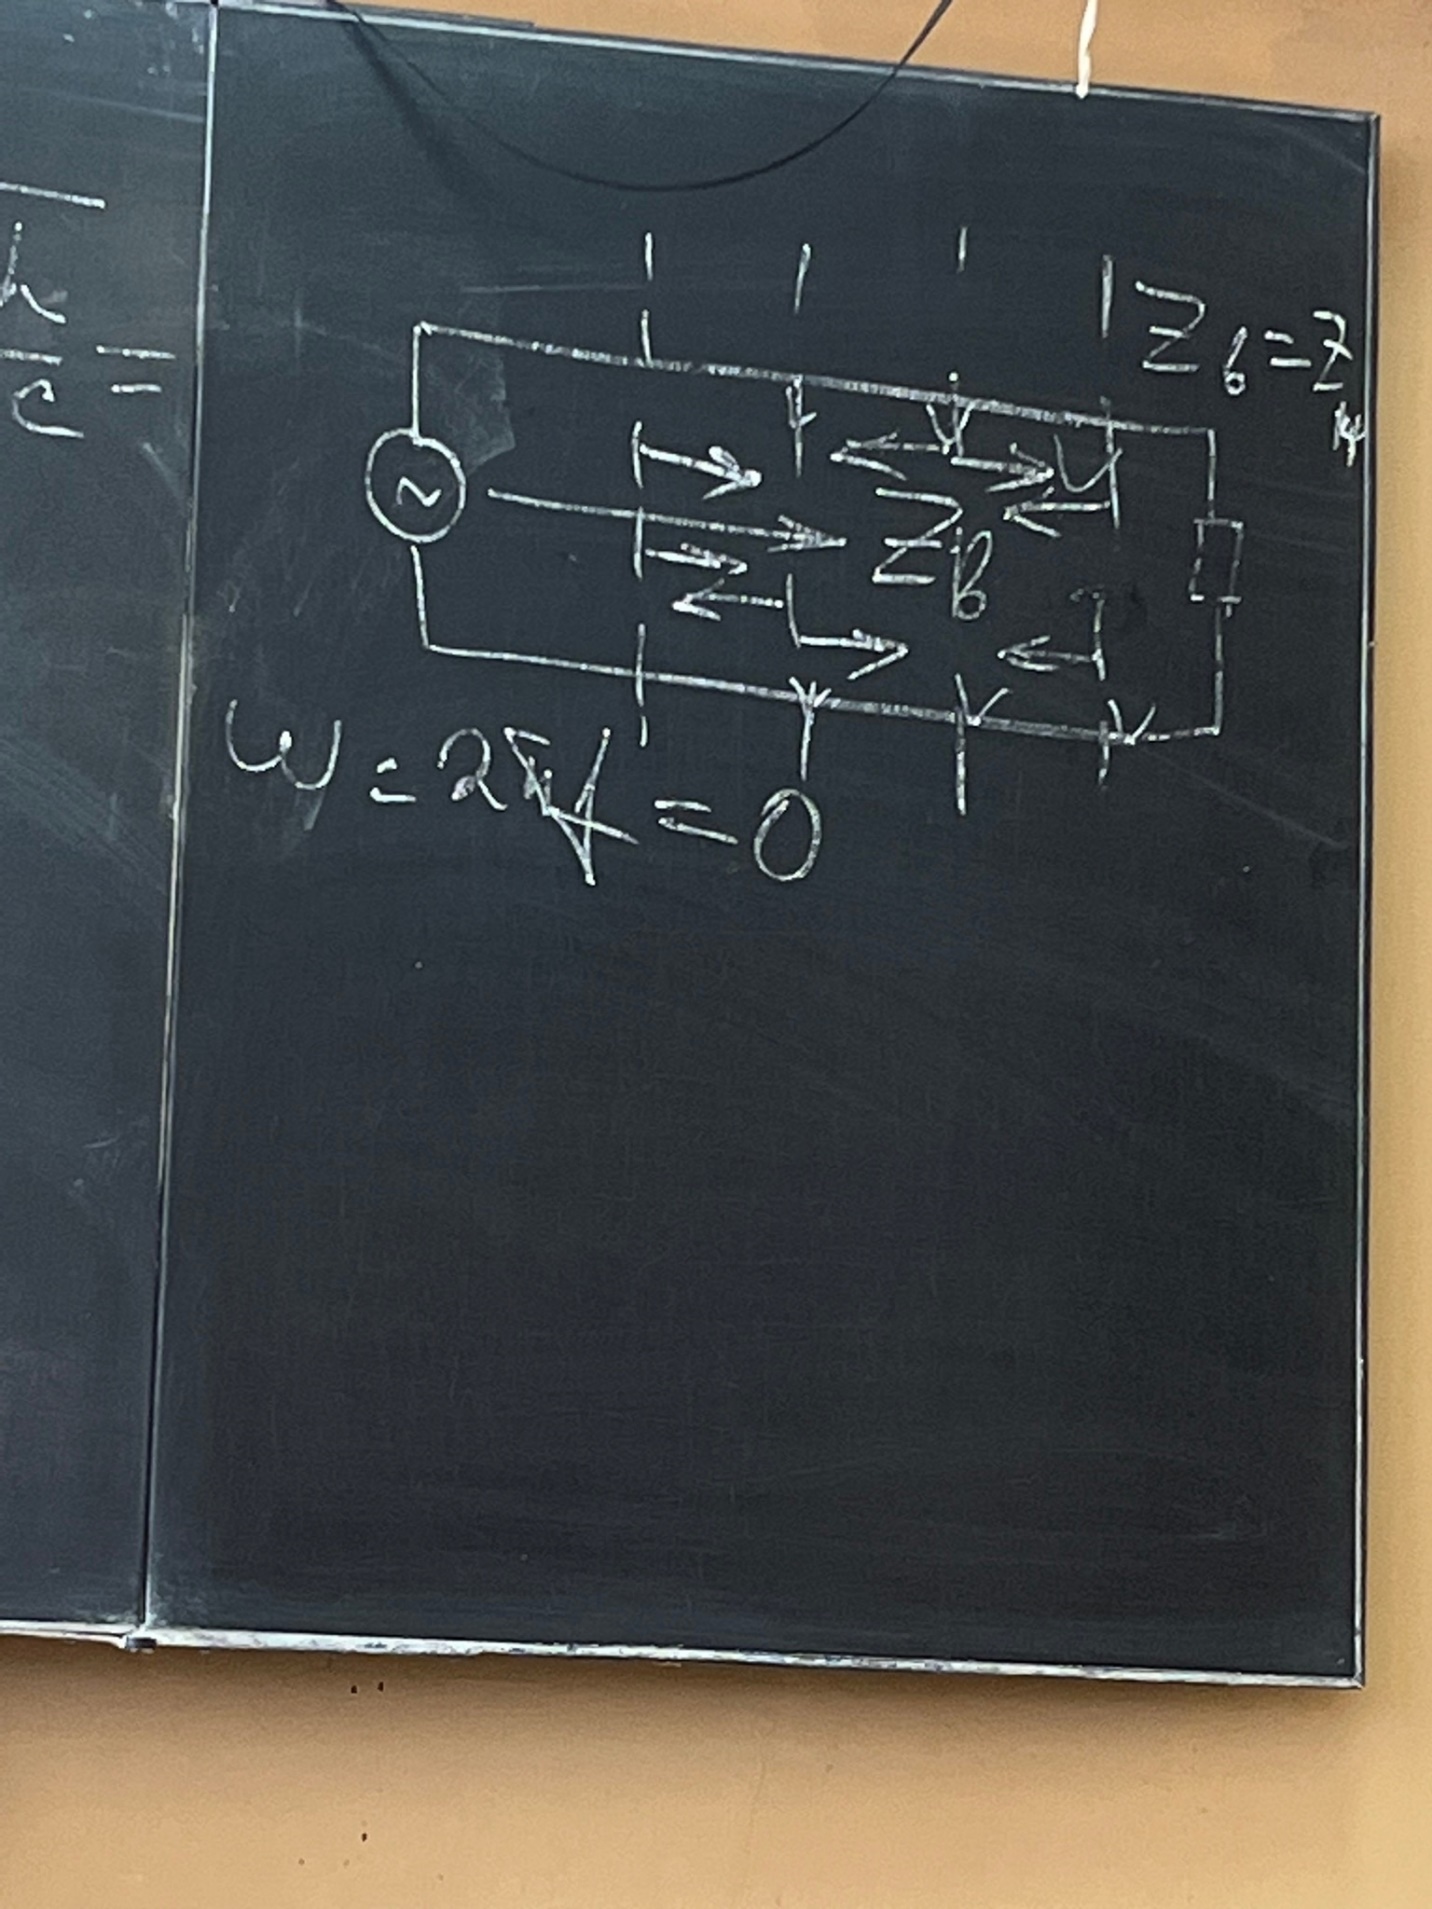 Z_в = Z_н
~
Z_в
ω = 2πf = 0
h
c =